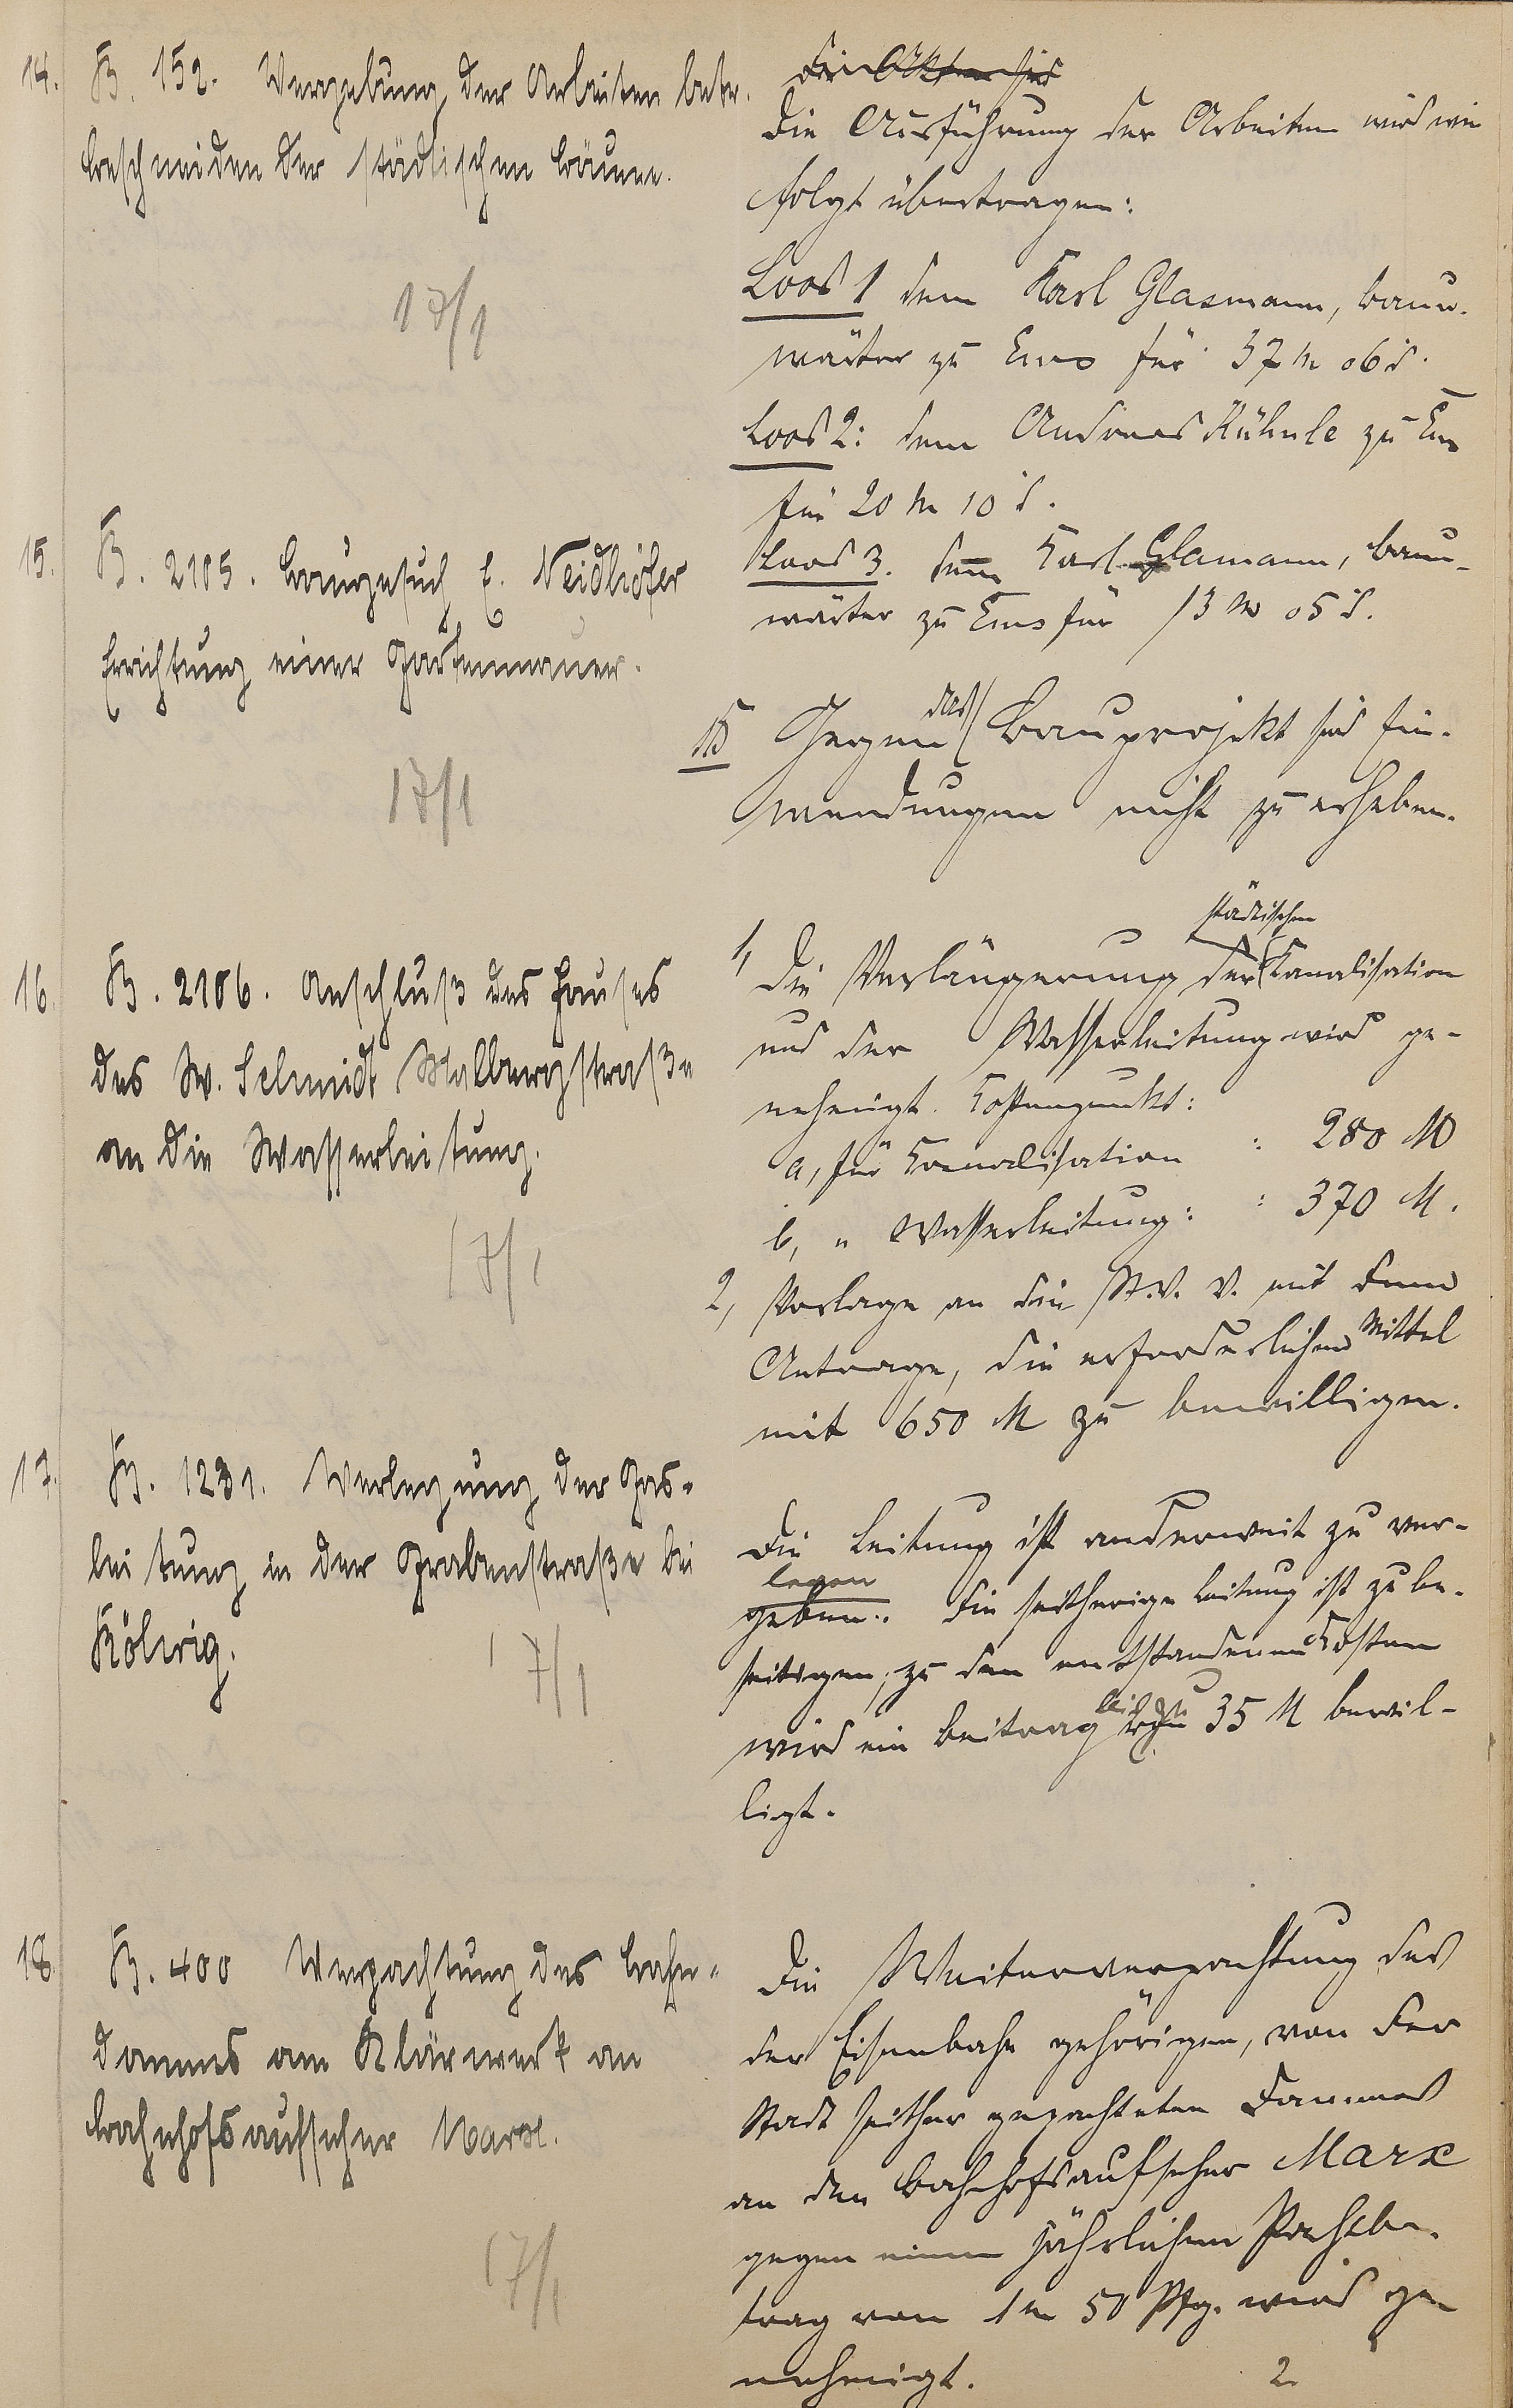 14. B. 152. Vergebung der Arbeiten betr.
beschneiden der städtischen Bäume.
17/1
Die Akten sind
Die Ausführung der Arbeiten wird wie
folgt übertragen:
Loos 1 dem Karl Glasmann, Baum-
wärter zu Ems für 37 M 06 d.
Loos 2: dem Andreas Kühnle zu Ems
für 20 M 10 d.
Loos 3. dem Karl Glamann, Baum-
wärter zu Ems für 13 M 05 d.
15. B. 2105. Baugesuch C. Neidhöfer
Errichtung einer Gartenmauer.
17/1
das
Gegen Bauprojekt sind Ein-
wendungen nicht zu erheben.
16. B. 2106. Anschluß des Hauses
des W. Schmidt Malbergstraße
an die Wasserleitung.
17/1
städtischen
1, Die Verlängerung der Kanalisation
und der Wasserleitung wird ge-
nehmigt. Kostenpunkt:
a, für Kanalisation : 280 M
b, " Wasserleitung: : 370 M.
2, Vorlage an die St.V.V. mit dem
Antrage, die erforderlichen Mittel
mit 650 M zu bewilligen.
17. B. 1231. Verlegung der Gas-
leitung in der Grabenstraße bei
Köhrig.
17/1
Die Leitung ist anderweit zu ver-
legen
geben. Die seitherige Leitung ist zu be-
seitigen; zu den entstandenen Kosten
wird ein Beitrag von 35 M bewil-
ligt.
18. B. 400 Verpachtung des Bahn-
dammes am Klärwerk an
Bahnhofsaufseher Marx.
17/1
Die Weiterverpachtung des
der Eisenbahn gehörigen, von der
Stadt seither gepachteten Dammes
an den Bahnhofsaufseher Marx
gegen einen jährlichen Pachtbe-
trag von 1 M 50 Pfg. wird ge-
nehmigt.
2.